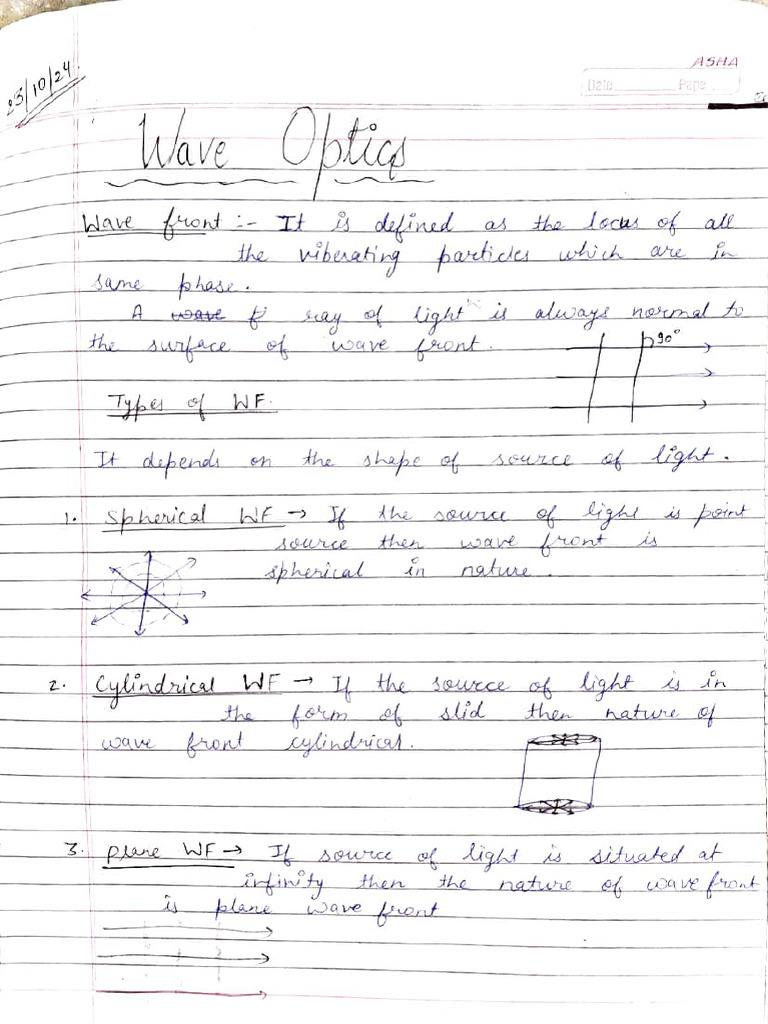 ASHA
Date Page
25/10/24
Wave Optics
Wave front :- It is defined as the locus of all
the viberating particles which are in
same phase.
A wave f ray of light is always normal to
the surface of wave front.
90°
Types of WF.
It depends on the shape of source of light.
1. Spherical WF → If the source of light is point
source then wave front is
spherical in nature.
2. Cylindrical WF → If the source of light is in
the form of slid then nature of
wave front cylindrical.
3. plane WF → If source of light is situated at
infinity then the nature of wave front
is plane wave front